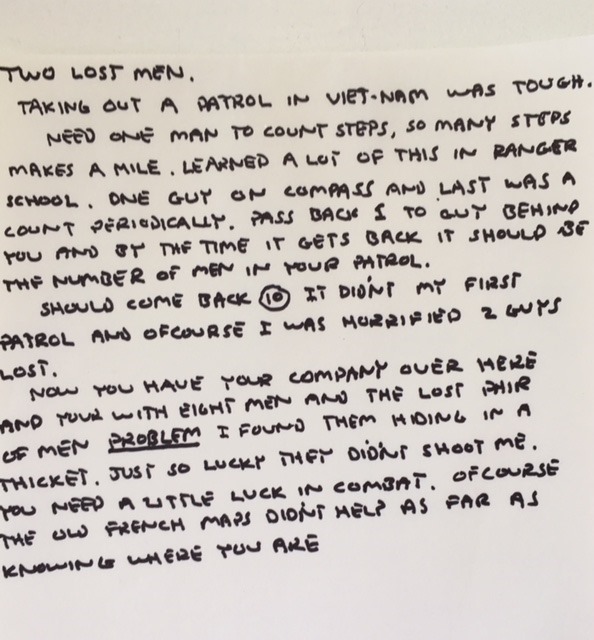 TWO LOST MEN.
TAKING OUT A PATROL IN VIET-NAM WAS TOUGH.
NEED ONE MAN TO COUNT STEPS, SO MANY STEPS
MAKES A MILE. LEARNED A LOT OF THIS IN RANGER
SCHOOL. ONE GUY ON COMPASS AND LAST WAS A
COUNT PERIODICALLY. PASS BACK 1 TO GUY BEHIND
YOU AND BY THE TIME IT GETS BACK IT SHOULD BE
THE NUMBER OF MEN IN YOUR PATROL.
SHOULD COME BACK 10 IT DIDN'T MY FIRST
PATROL AND OFCOURSE I WAS HORRIFIED 2 GUYS
LOST.
NOW YOU HAVE YOUR COMPANY OVER HERE
AND YOUR WITH EIGHT MEN AND THE LOST PAIR
OF MEN PROBLEM I FOUND THEM HIDING IN A
THICKET. JUST SO LUCKY THEY DIDN'T SHOOT ME.
YOU NEED A LITTLE LUCK IN COMBAT. OFCOURSE
THE OLD FRENCH MAPS DIDN'T HELP AS FAR AS
KNOWING WHERE YOU ARE